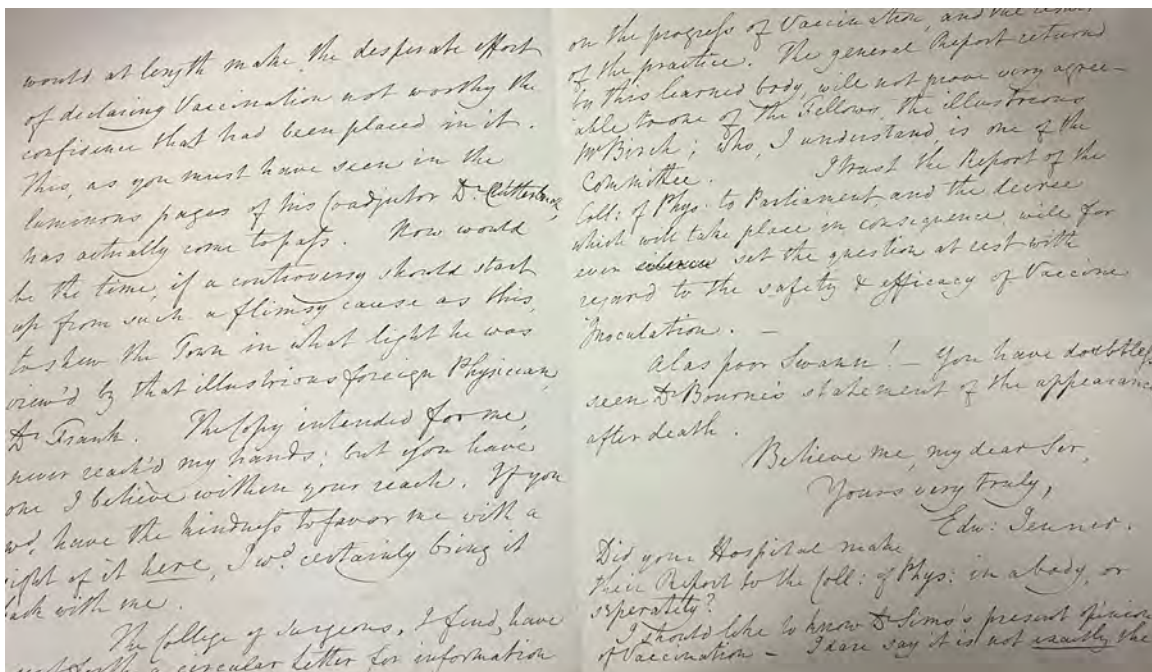 would at length make the desperate effort
of declaring Vaccination not worthy the
confidence that had been placed in it.
This, as you must have seen in the
luminous pages of his Coadjutor Dr. Clutterbuck,
has actually come to pass. Now would
be the time, if a controversy should start
up from such a flimsy cause as this,
to shew the Town in what light he was
view'd by that illustrious foreign Physician,
Dr. Frank. The Copy intended for me,
never reach'd my hands; but you have
one I believe within your reach. If you
wd. have the kindness to favor me with a
sight of it here, I wd. certainly bring it
back with me.
The College of Surgeons, I find, have
a circular letter for information
on the progress of Vaccination, and the
of the practice. The general Report return'd
by this learned body, will not prove very agree-
able to one of the Fellows, the illustrious
Mr Birch; who, I understand, is one of the
Committee. I trust the Report of the
Coll: of Phys: to Parliament and the decree
which will take place in consequence, will for
ever set the question at rest with
regard to the safety & efficacy of Vaccine
Inoculation. —
Alas poor Swann! — You have doubtless
seen Dr Bourne's statement of the appearance
after death.
Believe me, my dear Sir,
Yours very truly,
Edw: Jenner.
Did your Hospital make
their Report to the Coll: of Phys: in a body, or
seperately?
I should like to know Dr Sims's present opinion
of Vaccination — I dare say it is not exactly the